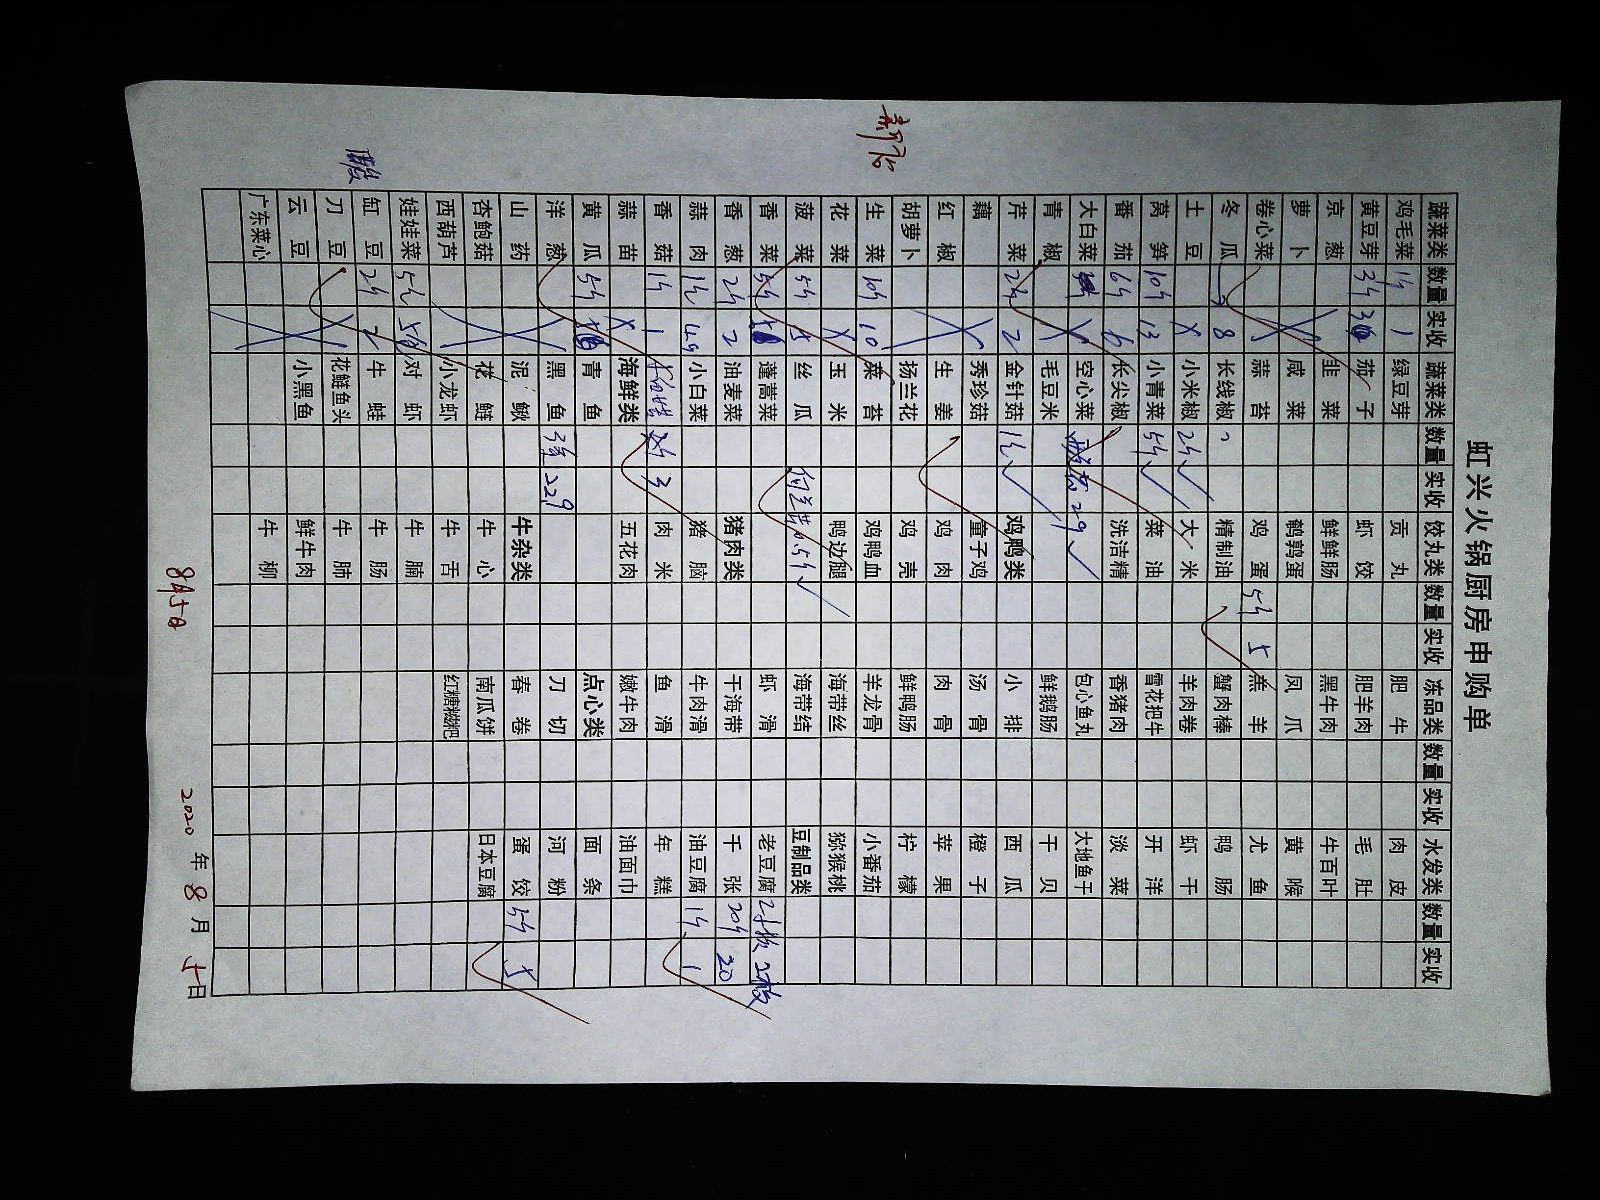 虹兴火锅厨房申购单
蔬菜类 数量 实收 蔬菜类 数量 实收 饺丸类 数量 实收 冻品类 数量 实收 水发类 数量 实收
鸡毛菜 1斤 1 绿豆芽 贡丸 肥牛 肉皮
黄豆芽 3斤 茄子 虾饺 肥羊肉 毛肚
京葱 韭菜 鲜鲜肠 黑牛肉 牛百叶
萝卜 咸菜 鹌鹑蛋 凤爪 黄喉
卷心菜 蒜苔 鸡蛋 5斤 5 羔羊 尤鱼
冬瓜 8 长线椒 精制油 蟹肉棒 鸭肠
土豆 X 小米椒 2斤 大米 羊肉卷 虾干
莴笋 10斤 13 小青菜 5斤 菜油 雪花把牛 开洋
番茄 6斤 6 长尖椒 洗洁精 香猪肉 淡菜
大白菜 空心菜 29 包心鱼丸 大地鱼干
青椒 毛豆米 鲜鹅肠 干贝
芹菜 2斤 2 金针菇 1斤 鸡鸭类 小排 西瓜
藕 秀珍菇 童子鸡 汤骨 橙子
红椒 生姜 鸡肉 肉骨 苹果
胡萝卜 扬兰花 鸡壳 鲜鸭肠 柠檬
生菜 10斤 10 菜苔 鸡鸭血 羊龙骨 小番茄
花菜 X 玉米 鸭边腿 海带丝 猕猴桃
菠菜 5斤 5 丝瓜 5斤 海带结 豆制品类
香菜 5斤 蓬蒿菜 虾滑 老豆腐
香葱 2斤 2 油麦菜 猪肉类 干海带 千张 20斤 20
蒜肉 1斤 小白菜 猪脑 牛肉滑 油豆腐 1斤 1
香菇 1斤 1 3 肉米 鱼滑 年糕
蒜苗 X 海鲜类 五花肉 嫩牛肉 油面巾
黄瓜 5斤 青鱼 点心类 面条
洋葱 黑鱼 229 刀切 河粉
山药 泥鳅 牛杂类 春卷 蛋饺 5斤 5
杏鲍菇 花鲢 牛心 南瓜饼 日本豆腐
西葫芦 小龙虾 牛舌 红糖糍粑
娃娃菜 5斤 对虾 牛腩
缸豆 2斤 2 牛蛙 牛肠
刀豆 花鲢鱼头 牛肺
云豆 小黑鱼 鲜牛肉
广东菜心 牛柳
8月5日
2020年8月5日